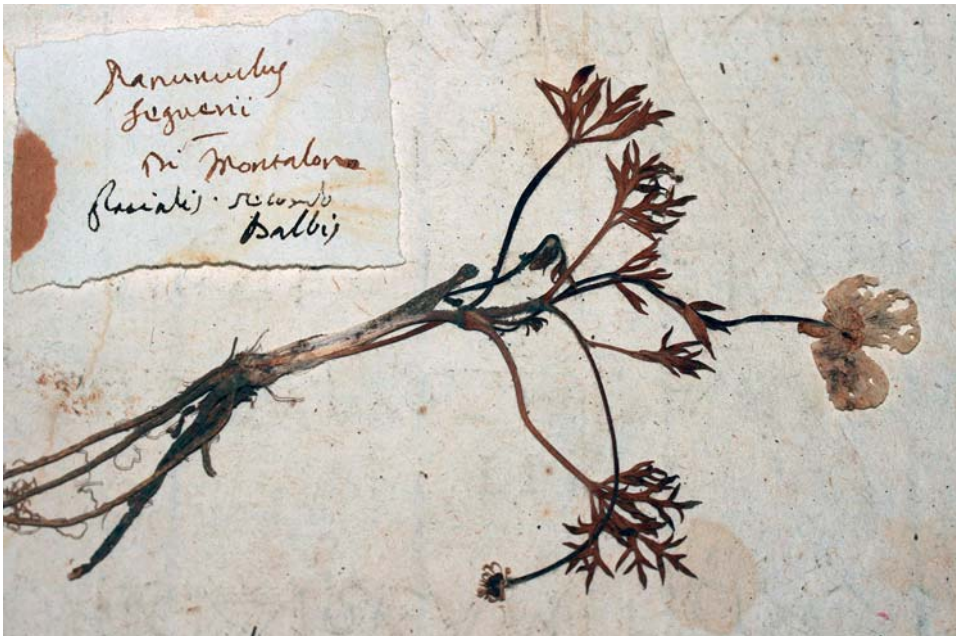 Ranunculus
Seguerii
Di Montalone
glacialis. secondo
Balbis